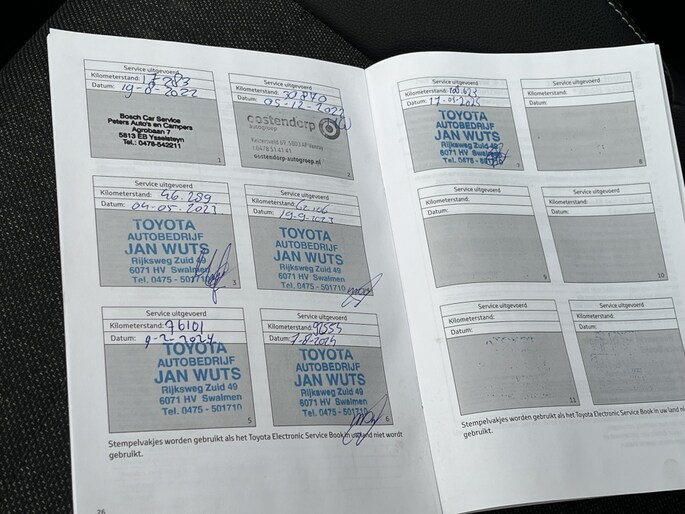 Service uitgevoerd
Kilometerstand:
Datum: 19-8-2022
Bosch Car Service
Peters Auto's en Campers
Agrobaan 7
5813 EB Ysselsteyn
Tel.: 0478-542211
1
Service uitgevoerd
Kilometerstand:
Datum: 05-12-2022
oostendorp
autogroep
oostendorp-autogroep.nl
2
Service uitgevoerd
Kilometerstand: 46.289
Datum: 04-05-2023
TOYOTA
AUTOBEDRIJF
JAN WUTS
Rijksweg Zuid 49
6071 HV Swalmen
Tel. 0475 - 501710
3
Service uitgevoerd
Kilometerstand:
Datum: 19-9-2023
TOYOTA
AUTOBEDRIJF
JAN WUTS
Rijksweg Zuid 49
6071 HV Swalmen
Tel. 0475 - 501710
Service uitgevoerd
Kilometerstand: 76101
Datum: 9-2-2024
TOYOTA
AUTOBEDRIJF
JAN WUTS
Rijksweg Zuid 49
6071 HV Swalmen
Tel. 0475 - 501710
5
Service uitgevoerd
Kilometerstand:
Datum:
TOYOTA
AUTOBEDRIJF
JAN WUTS
Rijksweg Zuid 49
6071 HV Swalmen
Tel. 0475 - 501710
6
Stempelvakjes worden gebruikt als het Toyota Electronic Service Book in uw land niet wordt
gebruikt.
26
Service uitgevoerd
Kilometerstand:
Datum:
TOYOTA
AUTOBEDRIJF
JAN WUTS
Rijksweg Zuid 49
6071 HV Swalmen
Tel. 0475 - 501710
7
Service uitgevoerd
Kilometerstand:
Datum:
8
Service uitgevoerd
Kilometerstand:
Datum:
9
Service uitgevoerd
Kilometerstand:
Datum:
10
Service uitgevoerd
Kilometerstand:
Datum:
11
Service uitgevoerd
Kilometerstand:
Datum:
Stempelvakjes worden gebruikt als het Toyota Electronic Service Book in uw land ni
gebruikt.